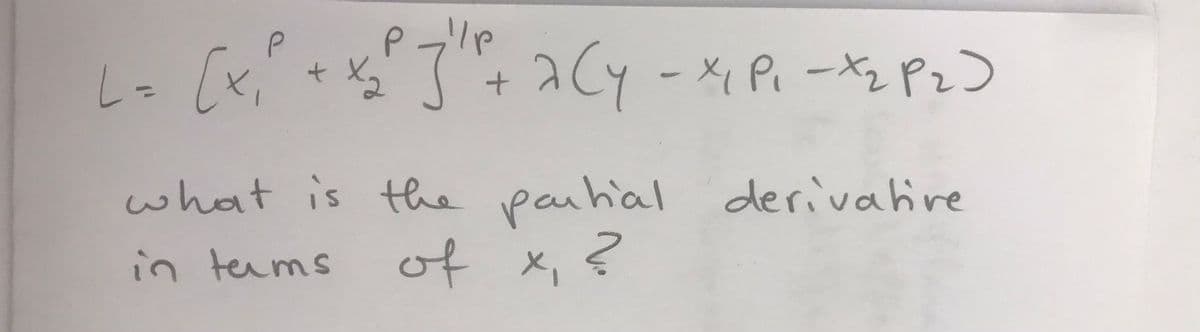 L = [x₁ᵖ + x₂ᵖ]¹/ᵖ + λ(y - x₁ P₁ - x₂ P₂)
what is the partial derivative
in terms of x₁ ?